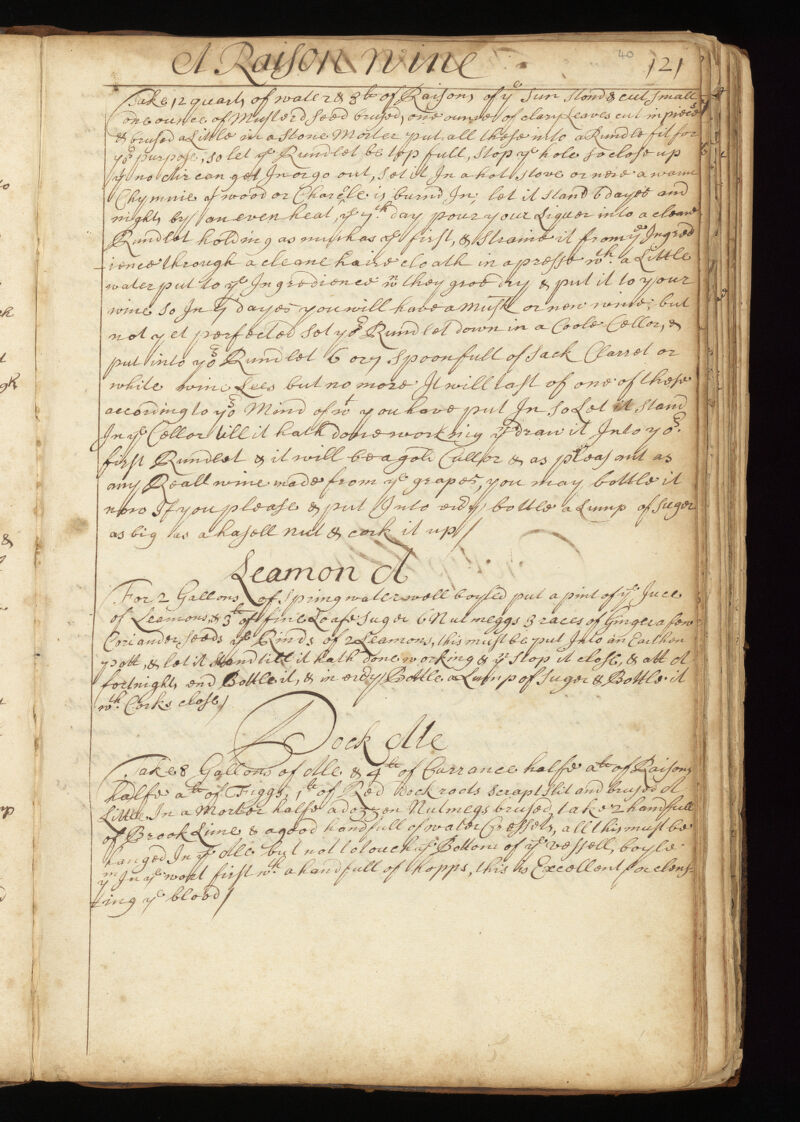 A Raison wine
40
121
Take 12 quarts of water & 8ᵗᵇ of Raisons of yᵉ Sun stond & cut small
one ounce of Musterd seed brused, one ounce of clary Leaves cut in pieces
& brused a Little in a stone Morter put all these into a Rundle fit for
yoᵘʳ purpose, so let yᵉ Rundlet be top full, stop yᵉ hole so close up
yᵗ no Air can get In or go out, set it In a hot stove or nere a warm
Chymnie yᵗ wood or Charcle is burnd In, let it stand 6 dayes and
nights by an even heat, yᵉ 7ᵗʰ day pour your Liquer into a cleane
Rundlet holding as much as yᵉ first, & straine it from yᵉ Ingred
ience through a cleane haire cloath in a presse wᵗʰ a Little
water put to yᵉ Ingredience wⁿ they grow dry & put it to your
wine so In 7 dayes you will have a Must or new wine, but
not yet perfected set yoʳ Rundlet down in a Coole Cellor, &
put into yoʳ Rundlet 6 or 7 spoonfull of sack Clarret or
white wine Lees but no more It will tast of one of these
according to yoʳ Mind of wᵗ you have put In so Let it stand
In yᵉ Cellor till it hath done working yⁿ draw it Into yoʳ
first Rundlet & it will be a gold Cullor & as pleasant as
any Reall wine made from yᵉ grapes, you may bottle it
now If you please & put Into every bottle a Lump of Suger
as big as a hasell nut & cork it up /
Leamon A
For 2 Gallons of spring water well boyled put a pint of yᵉ Juce
of Leamons, & 3ᵗᵇ of fine Loafe Suger 6 Nutmeggs 3 races of Ginger a few
Coriander seeds yᵉ Rinds of 2 Leamons, this must be put Into an Earthen
pott, & let it stand till it hath done working & yⁿ stop it close, & att a
fortnights end Bottle it, & in every Bottle a Lump of Suger & Bottle it
wᵗʰ Corks close /
Dock Ale
Take 8 Gallons of Ale & 4ᵗᵇ of Currance halfe aᵗᵇ of Raisons
halfe aᵗᵇ of Figgs, 1ᵗᵇ of Red Dock roots scrapt slit and brused a
Little In a Morter halfe a dozen Nutmegs brused, take 2 handfull
of Brook Lime & a good handfull of water Cresses, all this must be
hanged In yᵉ Ale but not to touch yᵉ Bottom of yᵉ vessell, boyle
yᵐ In yᵉ wort first wᵗʰ a handfull of hopps, this is Excellent for clens-
ing yᵉ blood /